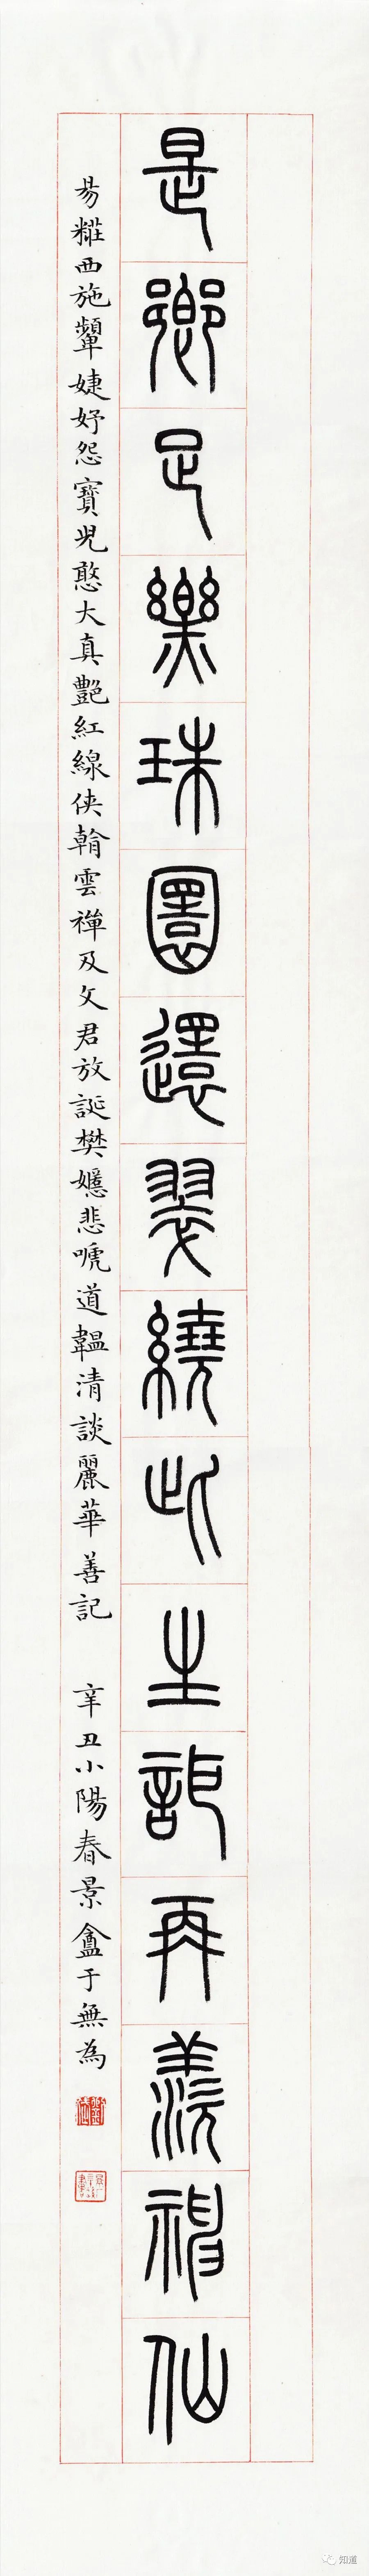 是鄉足樂珠圜還翠繞此生詎再羨神仙
易糚西施顰婕妤怨寶兒憨大真豔紅線俠朝雲禪及文君放誕樊嬺悲唬道韞清談麗華善記 辛丑小陽春景盦于無為
知道